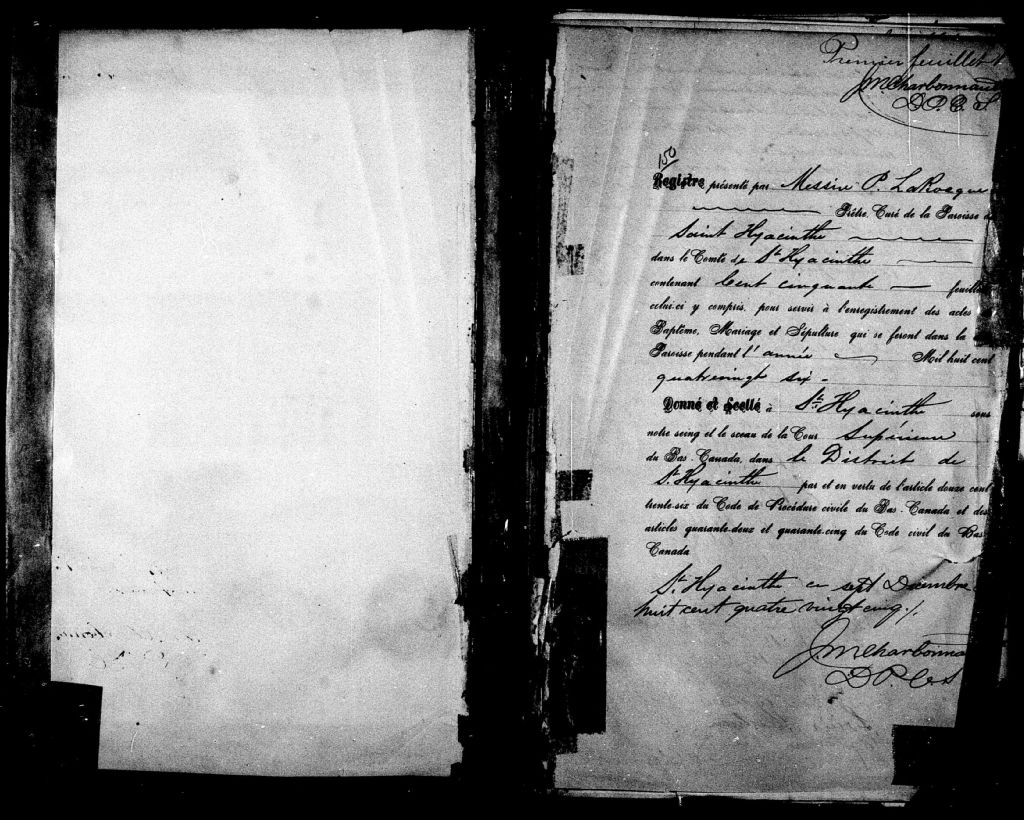 Premier feuillet
JMCharbonneau
D.P.C.S
150
Registre présenté par Messire P. LaRocque
Prêtre, Curé de la Paroisse d
Saint Hyacinthe
dans le Comté de St. Hyacinthe
contenant Cent cinquante feuill
celui-ci y compris, pour servir à l'enregistrement des actes
Baptême, Mariage et Sépulture qui se feront dans la
Paroisse pendant l'année Mil huit cent
quatrevingt six
Donné et Scellé à St. Hyacinthe sous
notre seing et le sceau de la Cour Supérieure
du Bas Canada, dans le District de
St. Hyacinthe par et en vertu de l'article douze cent
trente-six du Code de Procédure civile du Bas-Canada et des
articles quarante-deux et quarante-cinq du Code civil du Bas
Canada
St. Hyacinthe ce sept Décembre
huit cent quatre vingt cinq./.
JMCharbonnea
D.P.C.S